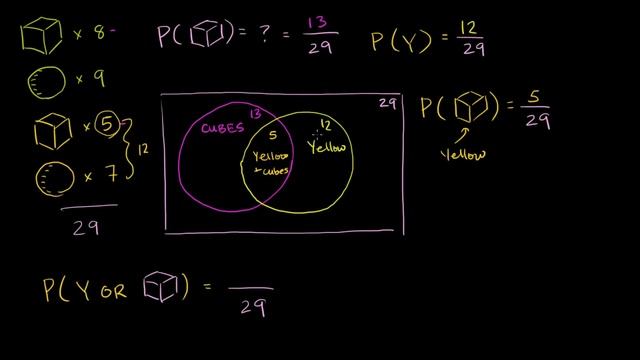 × 8 -
× 9
× 5
× 7
12
29
P( ) = ? = 13/29
P(Y) = 12/29
29
CUBES 13
5
Yellow
+ cubes
12
Yellow
P( ) = 5/29
Yellow
P( Y OR ) = /29